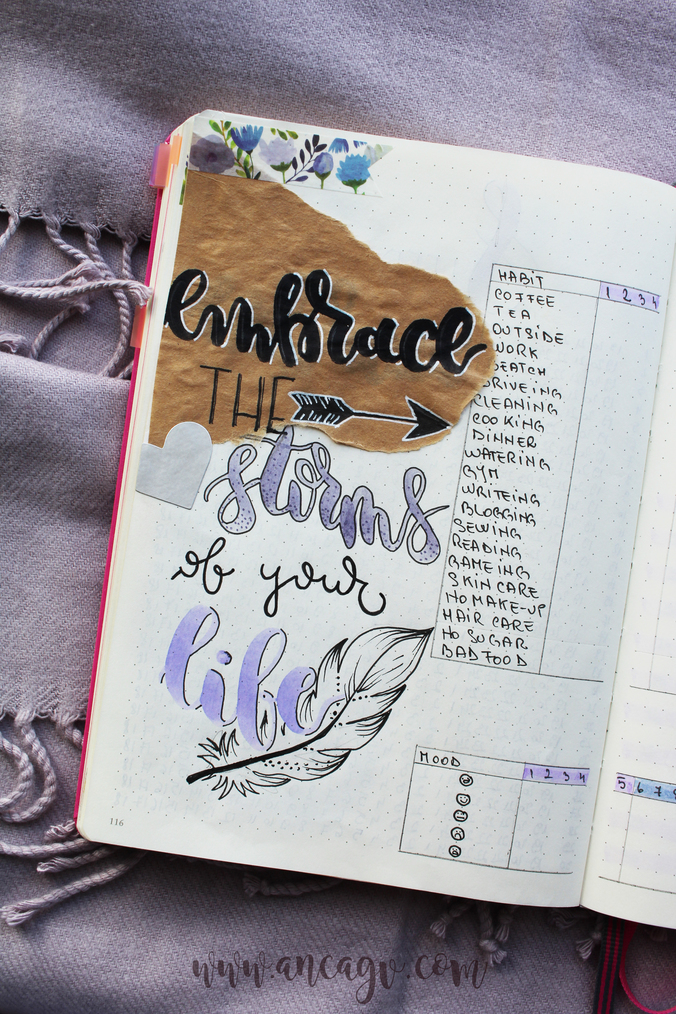 embrace
THE
storms
of your
life
HABIT
1 2 3 4
COFFEE
TEA
OUTSIDE
WORK
CLEANING
COOKING
DINNER
WATERING
GYM
WRITEING
BLOGGING
SEWING
READING
GAMEING
SKIN CARE
NO MAKE-UP
HAIR CARE
NO SUGAR
BAD FOOD
MOOD
1 2 3 4
5 6 7 8
116
www.ancagv.com